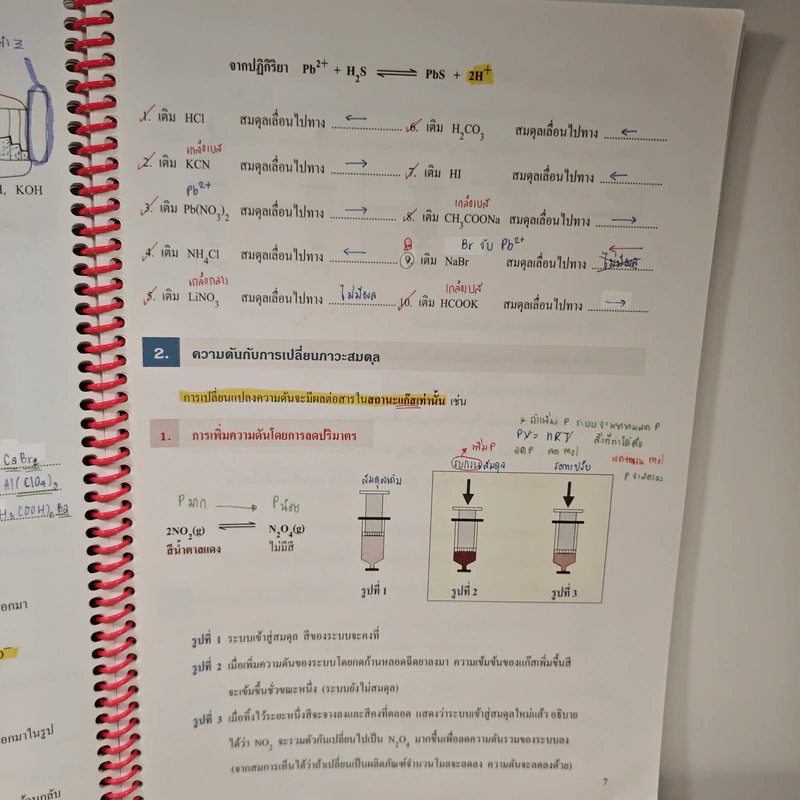 H, KOH
CaBr₂
Al(ClO₄)₃
อกมา
อกมาในรูป
จากปฏิกิริยา Pb²⁺ + H₂S ⇌ PbS + 2H⁺
1. เติม HCl สมดุลเลื่อนไปทาง ←
6. เติม H₂CO₃ สมดุลเลื่อนไปทาง ←
เกลือเบส
2. เติม KCN สมดุลเลื่อนไปทาง →
7. เติม HI สมดุลเลื่อนไปทาง ←
Pb²⁺
3. เติม Pb(NO₃)₂ สมดุลเลื่อนไปทาง →
เกลือเบส
8. เติม CH₃COONa สมดุลเลื่อนไปทาง →
4. เติม NH₄Cl สมดุลเลื่อนไปทาง ←
Br จับ Pb²⁺
9. เติม NaBr สมดุลเลื่อนไปทาง ไม่มีผล ←
เกลือกลาง
5. เติม LiNO₃ สมดุลเลื่อนไปทาง ไม่มีผล
เกลือเบส
10. เติม HCOOK สมดุลเลื่อนไปทาง →
2. ความดันกับการเปลี่ยนภาวะสมดุล
การเปลี่ยนแปลงความดันจะมีผลต่อสารในสถานะแก๊สเท่านั้น เช่น
1. การเพิ่มความดันโดยการลดปริมาตร
* ถ้าเพิ่ม P ระบบจะพยายามลด P
PV = nRT สิ่งที่ทำได้คือ
ลด P ลด mol
ลดจำนวน mol
P จะลดลง
เพิ่ม P
สมดุลเดิม
รบกวนสมดุล
P มาก → P น้อย
2NO₂(g) ⇌ N₂O₄(g)
สีน้ำตาลแดง ไม่มีสี
รูปที่ 1 รูปที่ 2 รูปที่ 3
รูปที่ 1 ระบบเข้าสู่สมดุล สีของระบบจะคงที่
รูปที่ 2 เมื่อเพิ่มความดันของระบบโดยกดก้านหลอดฉีดยาลงมา ความเข้มข้นของแก๊สเพิ่มขึ้นสี
จะเข้มขึ้นชั่วขณะหนึ่ง (ระบบยังไม่สมดุล)
รูปที่ 3 เมื่อทิ้งไว้ระยะหนึ่งสีจะจางลงและสีคงที่ตลอด แสดงว่าระบบเข้าสู่สมดุลใหม่แล้ว อธิบาย
ได้ว่า NO₂ จะรวมตัวกันเปลี่ยนไปเป็น N₂O₄ มากขึ้นเพื่อลดความดันรวมของระบบลง
(จากสมการเห็นได้ว่าถ้าเปลี่ยนเป็นผลิตภัณฑ์จำนวนโมลจะลดลง ความดันจะลดลงด้วย)
7